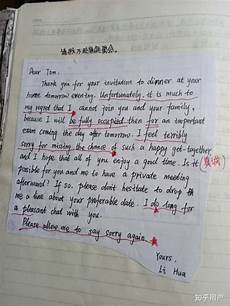 Dear Tom,
Thank you for your invitation to dinner at your
home tomorrow evening. Unfortunately, it is much to
my regret that I cannot join you and your family,
because I will be fully occupied then for an important
exam coming the day after tomorrow. I feel terribly
sorry for missing the chance of such a happy get-together
and I hope that all of you enjoy a good time. Is it
possible for you and me to have a private meeting
afterward? If so, please don't hesitate to drop
me a line about your preferable date. I do long for
a pleasant chat with you.
Please allow me to say sorry again.
Yours,
Li Hua
知乎用户